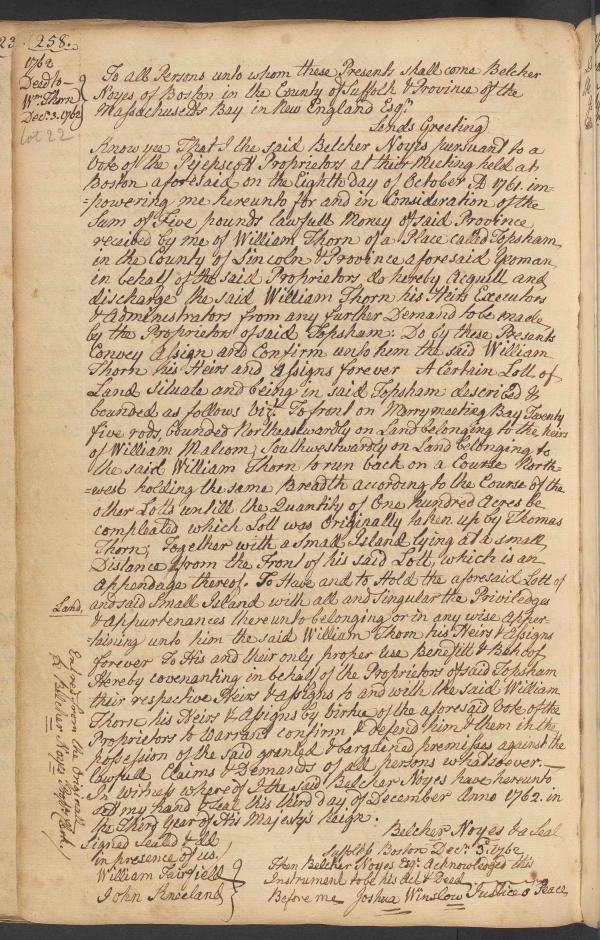 258.
1762
Deed to
Wm. Thorn
Decr. 3. 1762
Lot 22
To all Persons unto whom these Presents shall come Belcher
Noyes of Boston in the County of Suffolk & Province of the
Massachusetts Bay in New England Esqr.
Sends Greeting
Know yee That I the said Belcher Noyes pursuant to a
Vote of the Pejepscott Proprietors at their Meeting held at
Boston aforesaid on the Eighth day of October AD 1761. im=
=powering me hereunto for and in Consideration of the
Sum of Five pounds lawfull Money of said Province
received by me of William Thorn of a Place called Topsham
in the County of Lincoln & Province aforesaid Yeoman
in behalf of the said Proprietors do hereby Acquitt and
discharge the said William Thorn his Heirs Executors
& Administrators from any further Demand to be made
by the Proprietors of said Topsham: Do by these Presents
Convey Assign and Confirm unto hem the said William
Thorn his Heirs and Assigns forever A Certain Lott of
Land Situate and being in said Topsham described &
bounded as follows Vizt. To front on Merrymeeting Bay Twenty
five rods, bounded Northeastwardly on Land belonging to the heirs
of William Malcom; Southwestwardly on Land belonging to
the said William Thorn to run back on a Course North=
=west holding the same Breadth according to the Course of the
other Lotts untill the Quantity of One hundred Acres be
compleated which Lott was Originally taken up by Thomas
Thorn; Together with a Small Island lying at a small
Distance from the Front of his said Lott, which is an
Appendage thereof. To Have and to Hold the aforesaid Lott of
Land,
and said Small Island with all and singular the Priviledges
& Appurtenances thereunto belonging or in any wise Apper=
=taining unto him the said William Thorn his Heirs & Assigns
forever To His and their only proper use Benefitt & Behoof
Hereby covenanting in behalf of the Proprietors of said Topsham
their respective Heirs & Assigns to and with the said William
Thorn his Heirs & Assigns by virtue of the aforesaid Vote of the
Proprietors to Warrant confirm & defend him & them in the
possession of the said granted & bargained premisses against the
lawfull Claims & Demands of all persons whadsoever.
In witness whereof I the said Belcher Noyes have hereunto
set my hand & seal this third day of December Anno 1762. in
the Third Year of His Majestys Reign.
Entred from the Originall
Belcher Noyes Clerk
Belcher Noyes & a Seal
Signed Sealed & dd
in presence of us.
William Fairfield
John Kneeland
Suffolk ss Boston Decr. 3. 1762
Then Belcher Noyes Esqr. Acknowledged this
Instrument to be his Act & Deed
Before me Joshua Winslow Justice o' Peace